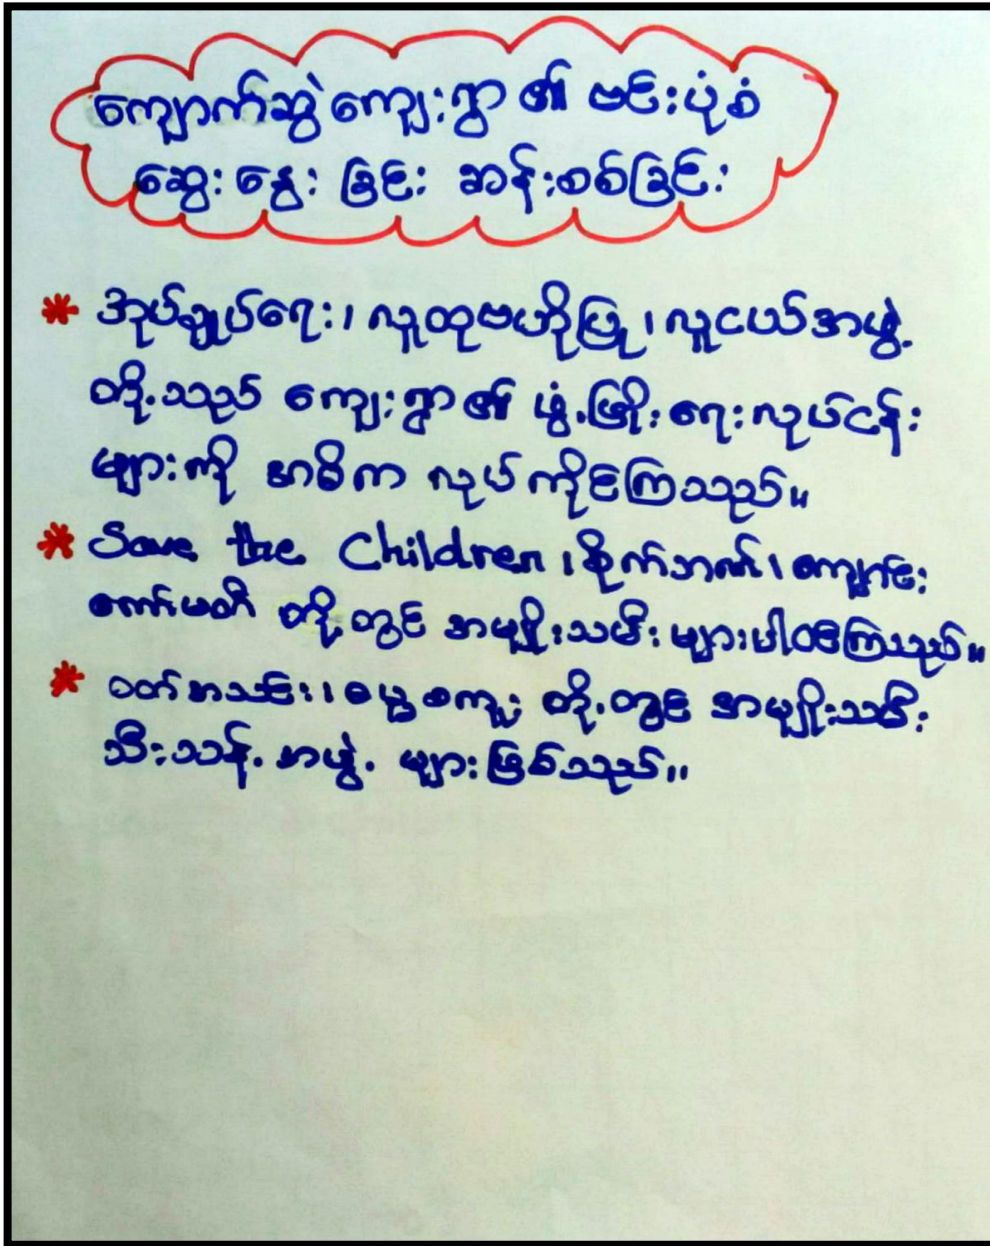 ကျောက်ဆွဲကျေးရွာ၏ ဗင်းပုံစံ
ဆွေးနွေးခြင်း ဆန်းစစ်ခြင်း
* အုပ်ချုပ်ရေး၊ လူထုဗဟိုပြု၊ လူငယ်အဖွဲ့
တို့သည် ကျေးရွာ၏ ဖွံ့ဖြိုးရေးလုပ်ငန်း
များကို အဓိက လုပ်ကိုင်ကြသည်။
* Save the Children၊ စိုက်ဘဏ်၊ ကျောင်း
ကော်မတီ တို့တွင် အမျိုးသမီးများပါဝင်ကြသည်။
* ဝတ်အသင်း၊ ဓမ္မစကူး တို့တွင် အမျိုးသမီး
သီးသန့်အဖွဲ့ များဖြစ်သည်။